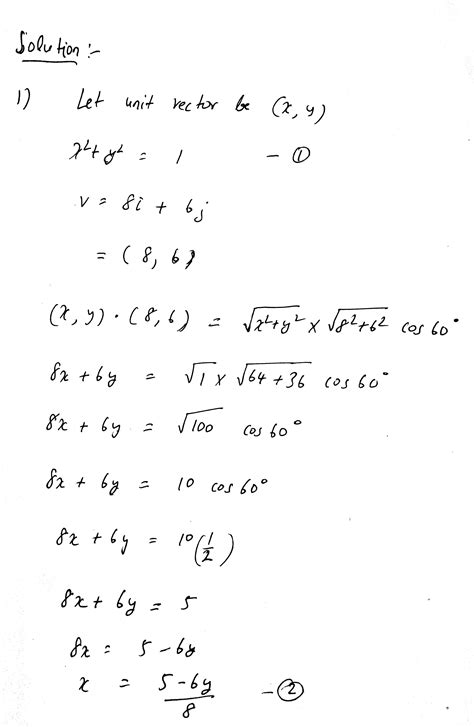 Solution :-
1) Let unit vector be (x, y)
x² + y² = 1 - ①
v = 8i + 6j
= (8, 6)
(x, y) · (8, 6) = √x²+y² × √8²+6² cos 60°
8x + 6y = √1 × √64 + 36 cos 60°
8x + 6y = √100 cos 60°
8x + 6y = 10 cos 60°
8x + 6y = 10 (1/2)
8x + 6y = 5
8x = 5 - 6y
x = 5 - 6y / 8 - ②